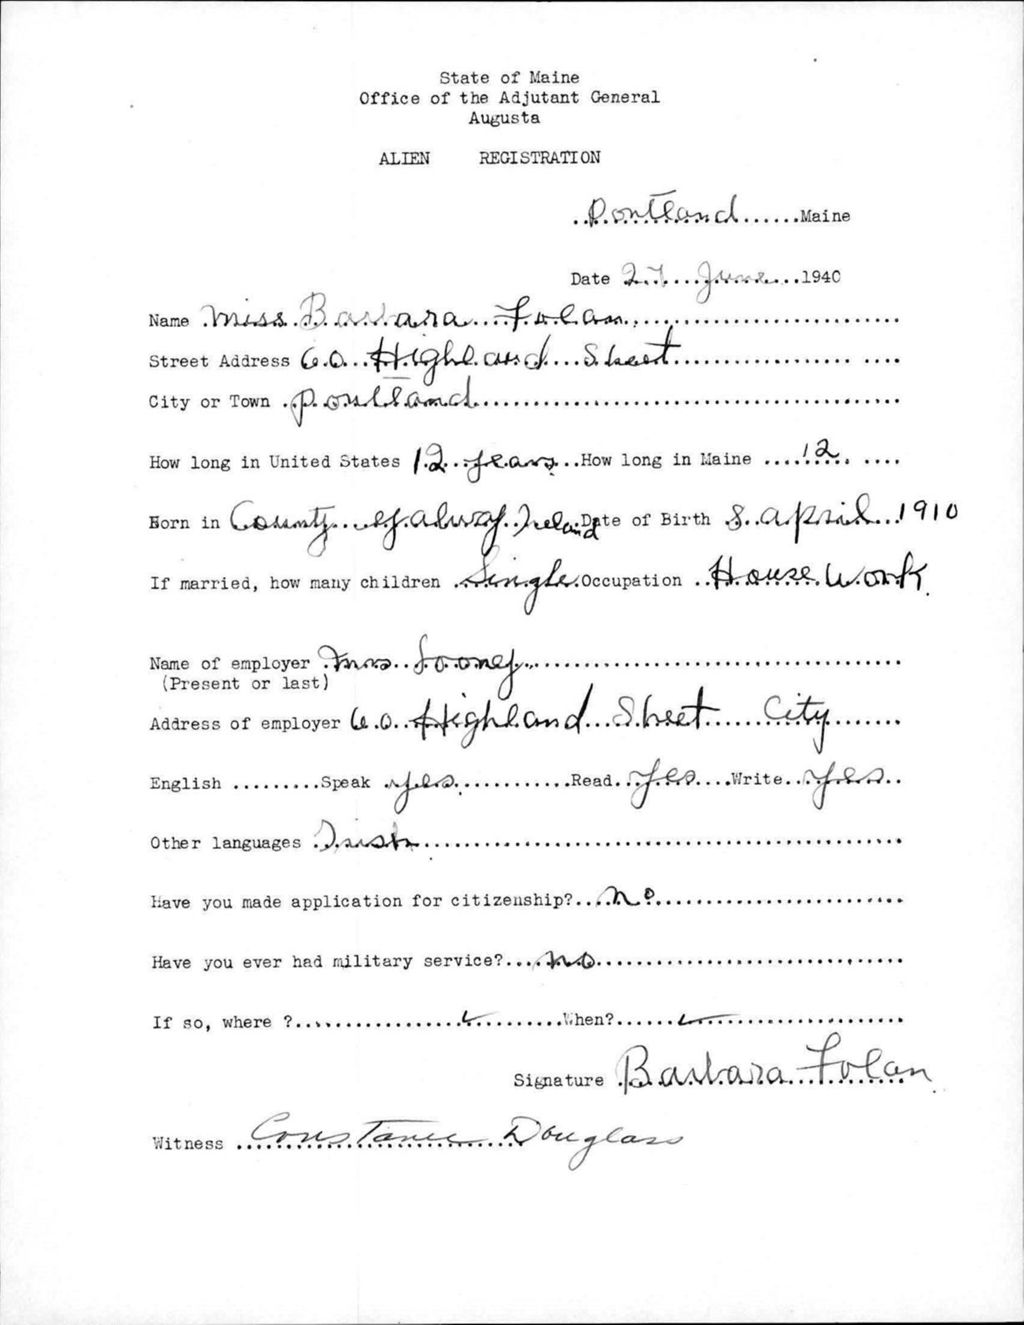 State of Maine
Office of the Adjutant General
Augusta
ALIEN REGISTRATION
Portland Maine
Date 27 June 1940
Name Miss Barbara Folan
Street Address 60 Highland Street
City or Town Portland
How long in United States 12 years How long in Maine 12
Born in County Galway Ireland Date of Birth 8 April 1910
If married, how many children Single Occupation House Work
Name of employer Mrs Looney
(Present or last)
Address of employer 60 Highland Street City
English Speak yes Read yes Write yes
Other languages Irish
Have you made application for citizenship? No
Have you ever had military service? no
If so, where ? When?
Signature Barbara Folan
Witness Constance Douglass